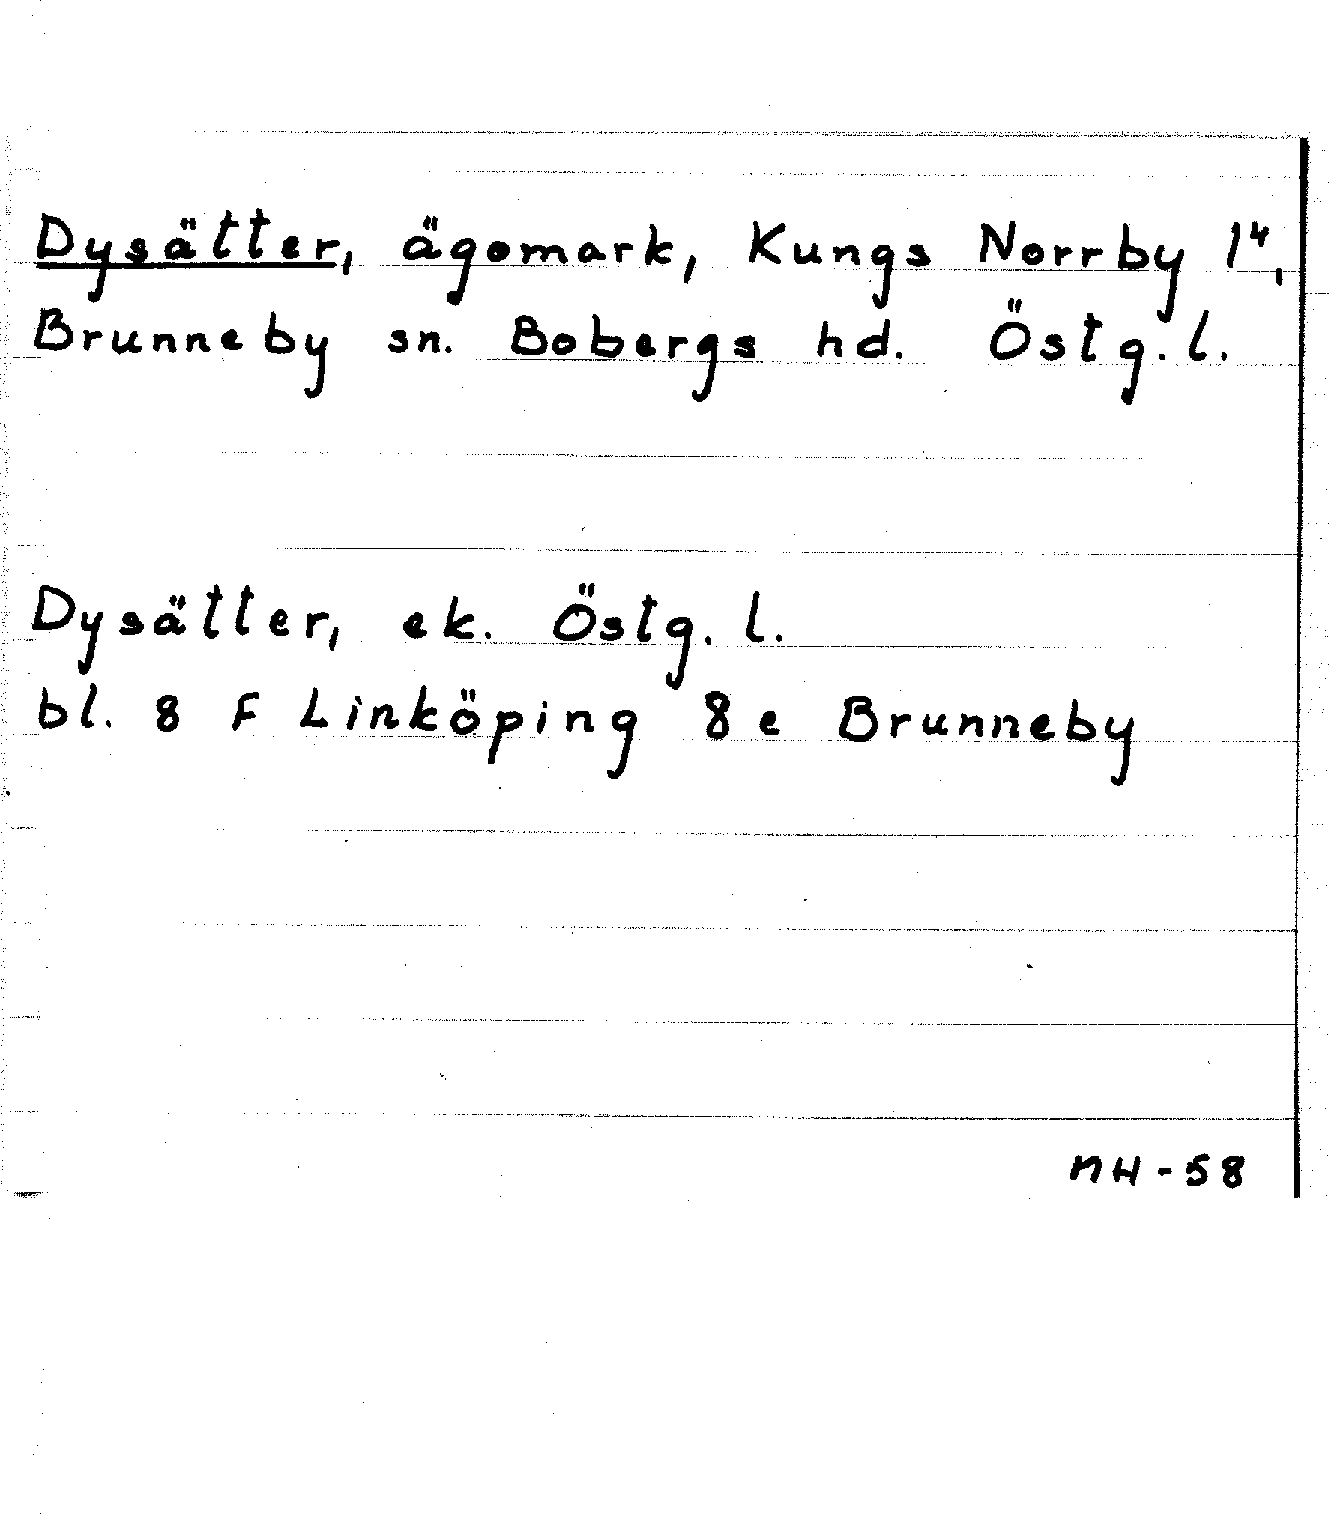 Dysätter, ägomark, Kungs Norrby 1⁴,
Brunneby sn. Bobergs hd. Östg. l.
Dysätter, ek. Östg. l.
bl. 8 F Linköping 8 e Brunneby
NH-58